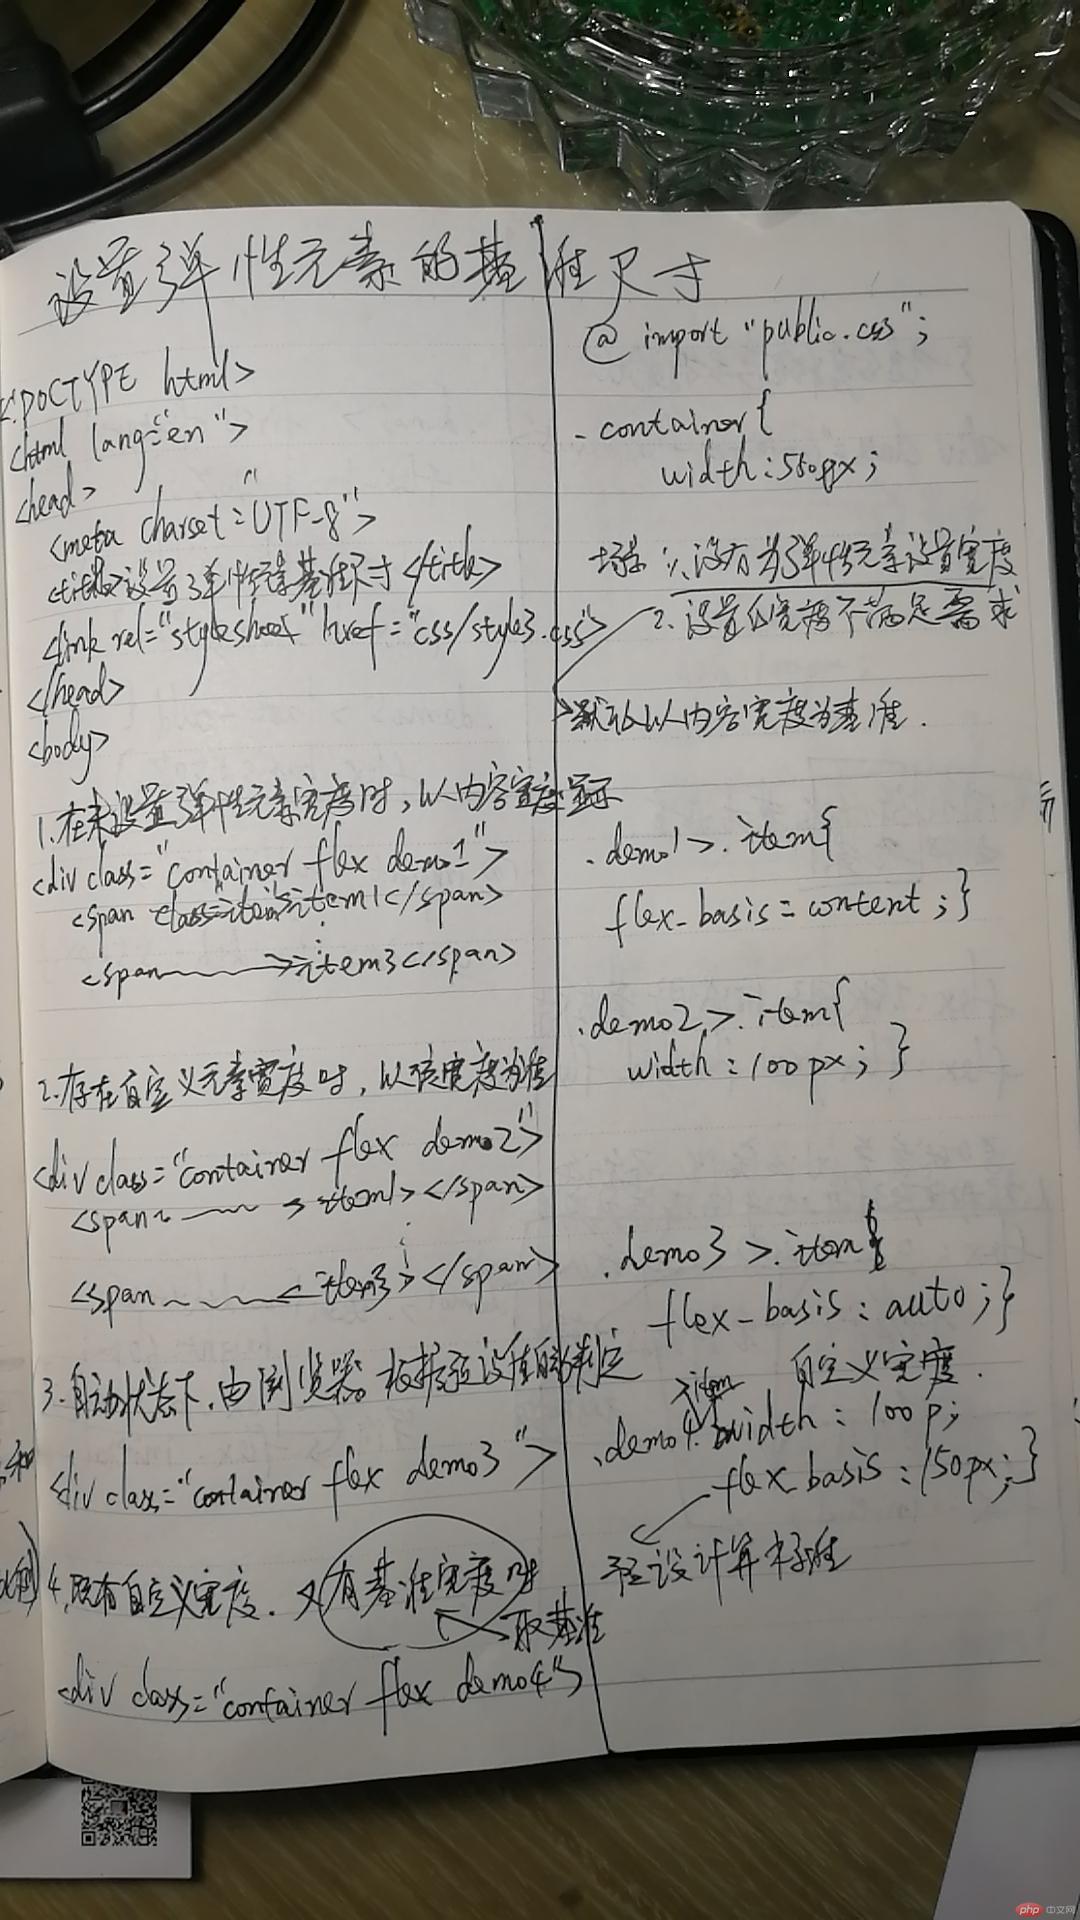 设置弹性元素的基准尺寸
<!DOCTYPE html>
<html lang="en">
<head>
<meta charset="UTF-8">
<title>设置弹性元素基准尺寸</title>
<link rel="stylesheet" href="css/style3.css">
</head>
<body>
1.在未设置弹性元素宽度时,以内容宽度显示
<div class="container flex demo1">
<span class="item">item1</span>
<span item3</span>
2.存在自定义元素宽度时,以该宽度为准
<div class="container flex demo2">
<span item1></span>
<span item3></span>
3.自动状态下.由浏览器根据预设值自动判定
<div class="container flex demo3">
4.既有自定义宽度.又有基准宽度时
取基准
<div class="container flex demo4">
@import "public.css";
.container{
width:550px;
场景:1.没有为弹性元素设置宽度
2.设置的宽度不满足需求
默认以内容宽度为基准.
.demo1>.item{
flex-basis=content;}
.demo2>.item{
width:100px;}
.demo3>.item{
flex-basis:auto;}
自定义宽度.
>item
.demo4 width:100p;
flex basis:150px;}
预设计算标准
php 中文网